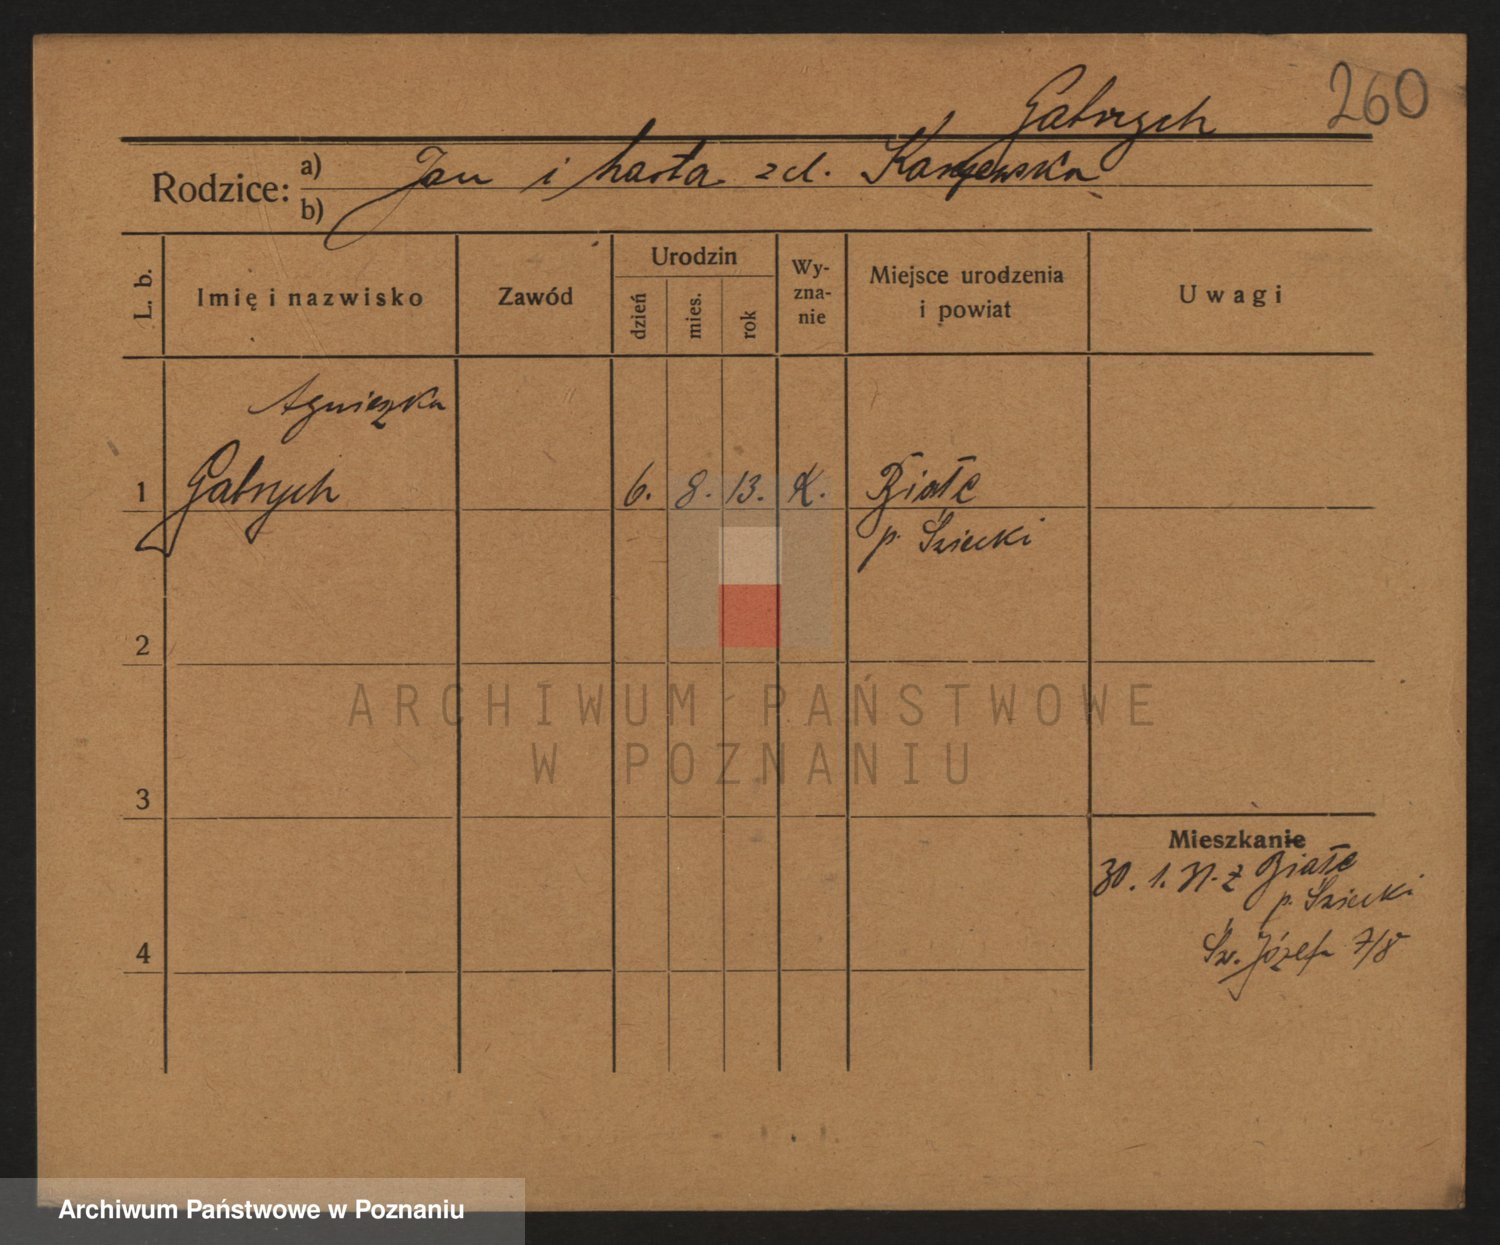 260
Gabrych
Rodzice: a) Jan i Marta z d. Kaszewska
b)
L. b.
Imię i nazwisko
Zawód
Urodzin
dzień
mies.
rok
Wy-
zna-
nie
Miejsce urodzenia
i powiat
Uwagi
Agnieszka
1 Gabrych 6. 8. 13. K. Białe
p.
2
ARCHIWUM PAŃSTWOWE
W POZNANIU
3
Mieszkanie
30. 1. 31. z Białe
p.
4
Św. Józefa 7/8
Archiwum Państwowe w Poznaniu